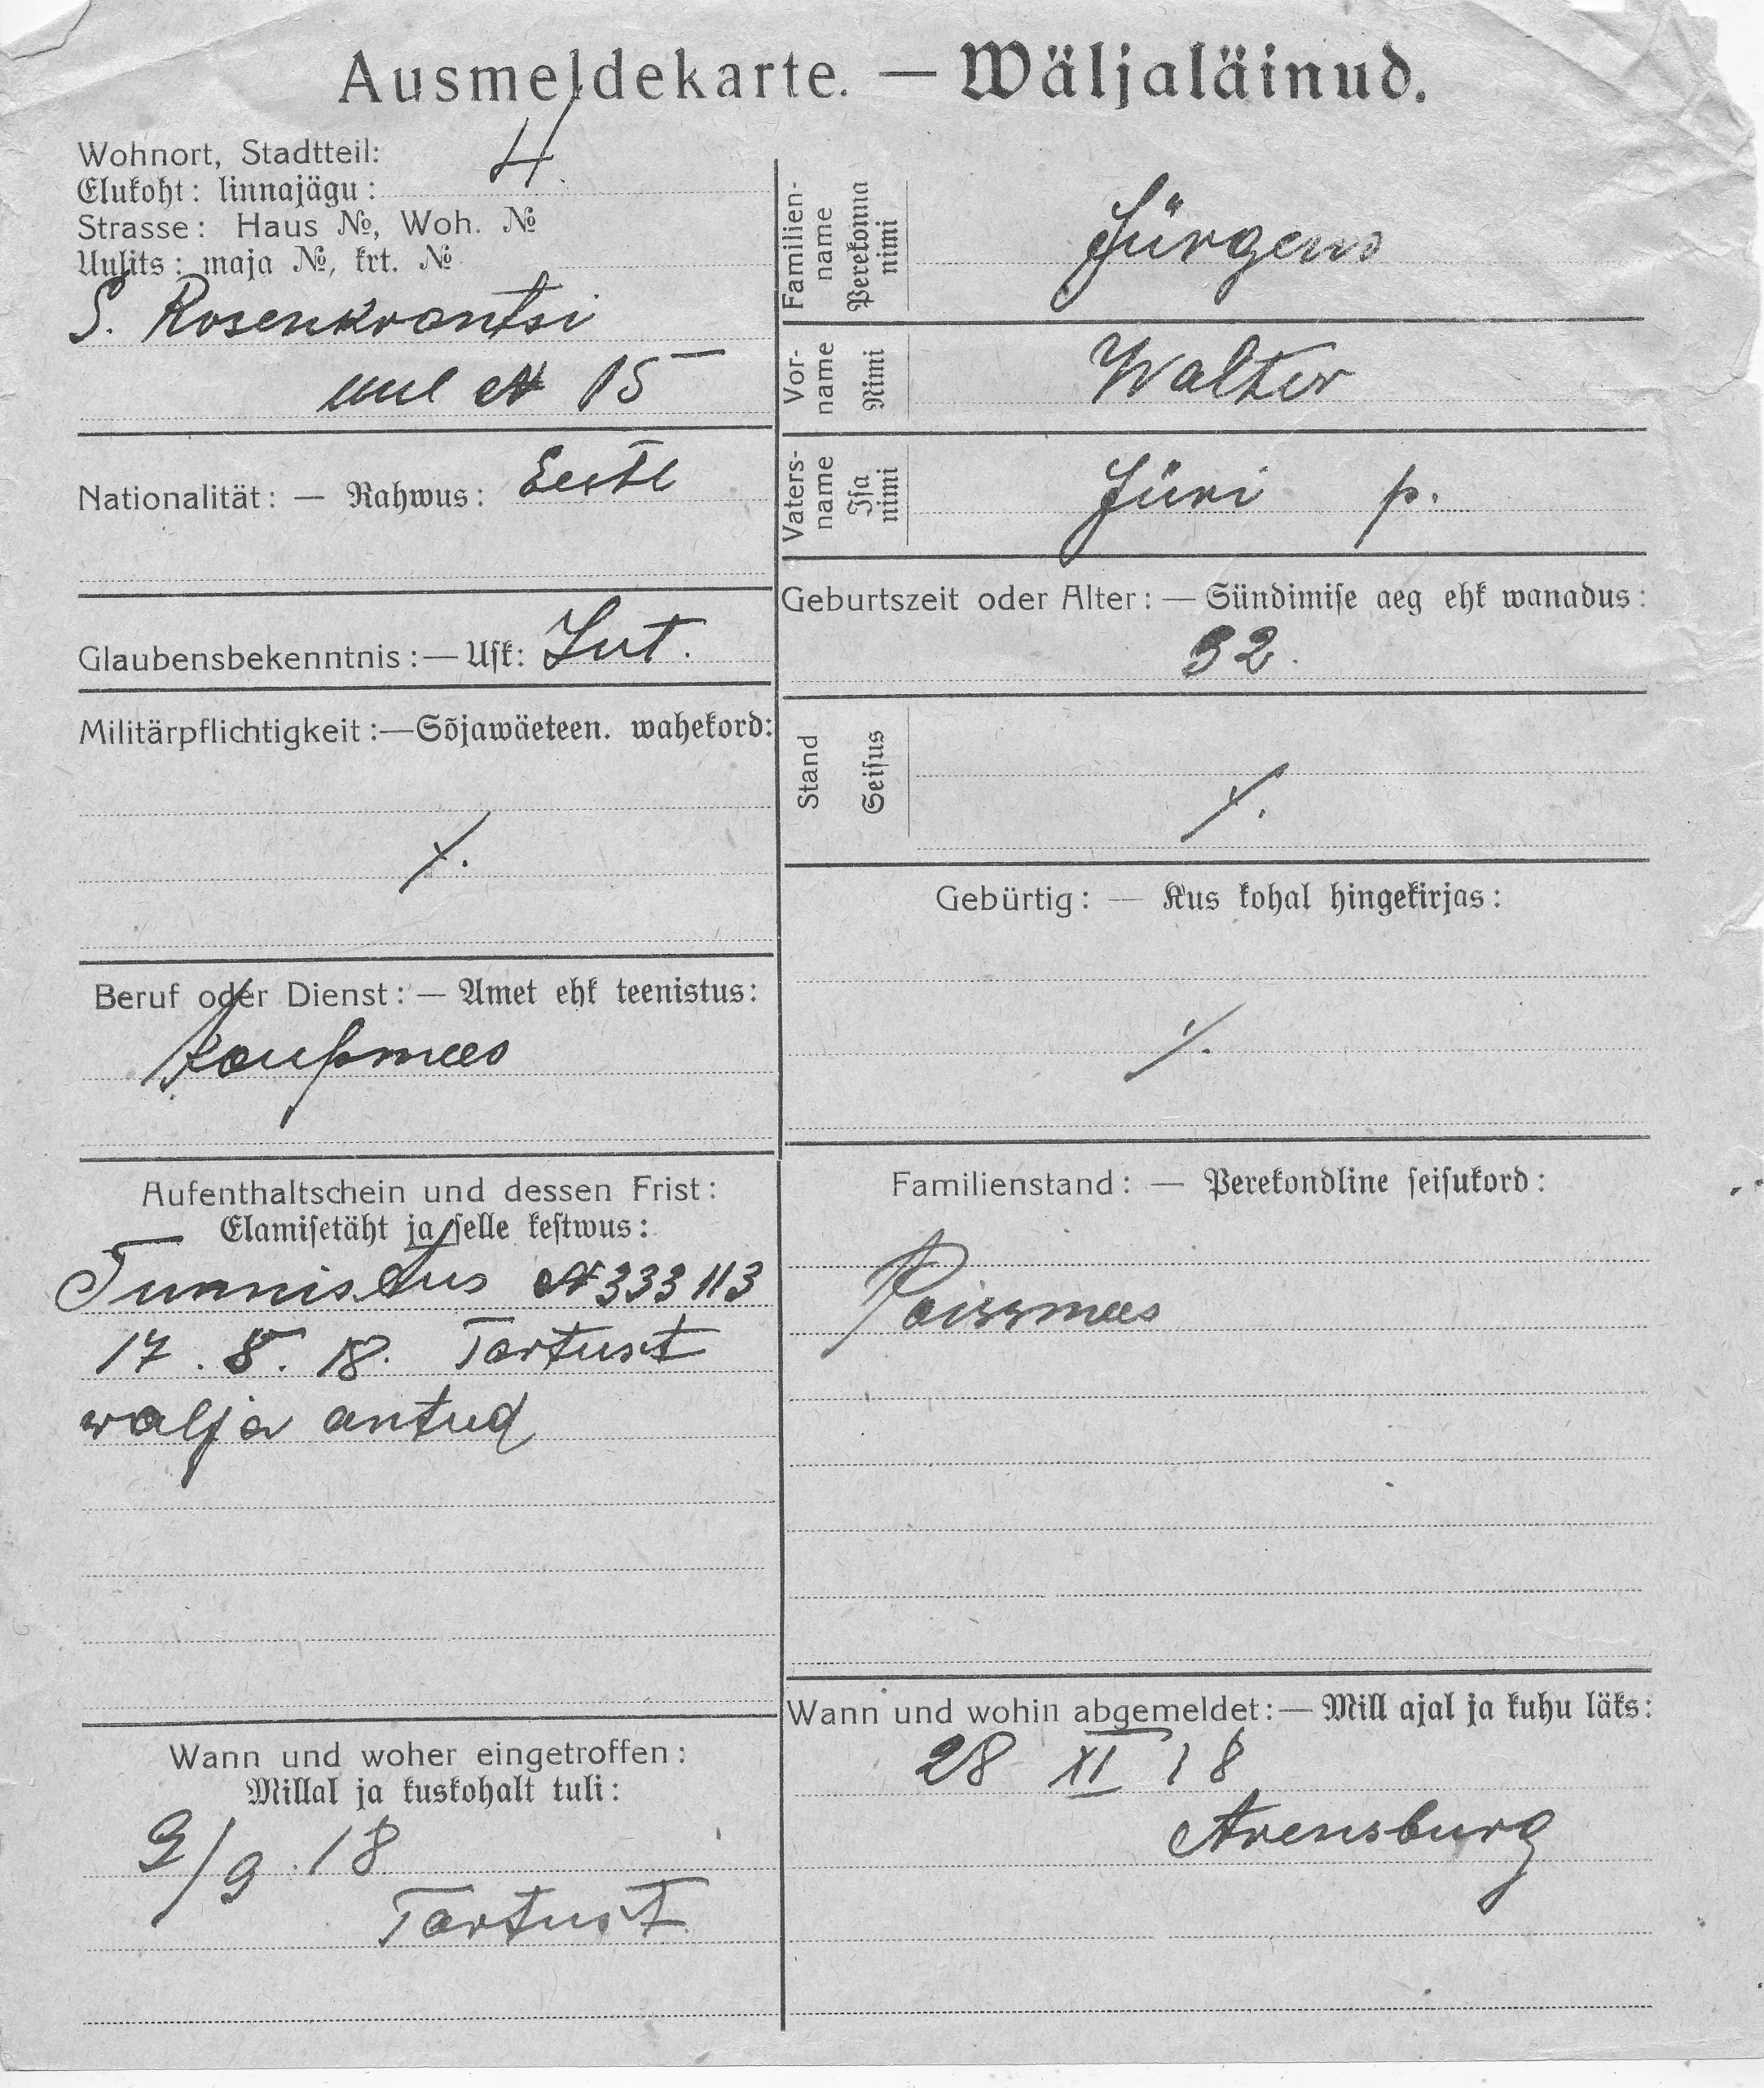 Ausmeldekarte. — Wäljaläinud.
Wohnort, Stadtteil: 4.
Elukoht: linnajägu:
Strasse: Haus №, Woh. №
Uulits: maja №, krt. №
S. Rosenkrantsi
uul № 15
Nationalität: — Rahwus: Eestl
Glaubensbekenntnis:— Usk: Lut.
Militärpflichtigkeit:—Sõjawäeteen. wahekord:
Beruf oder Dienst: — Amet ehk teenistus:
Kaupmees
Aufenthaltschein und dessen Frist:
Elamisetäht ja selle kestwus:
Tunnistus № 333113
17. 8. 18. Tartust
walja antud
Wann und woher eingetroffen:
Millal ja kuskohalt tuli:
9/9. 18
Tartust
Familien-
name
Perekonna
nimi
Jürgens
Vor-
name
Nimi
Walter
Vaters-
name
Isa
nimi
Jüri p.
Geburtszeit oder Alter: — Sündimise aeg ehk wanadus:
32.
Stand
Seisus
Gebürtig: — Kus kohal hingekirjas:
Familienstand: — Perekondline seisukord:
Poissmees
Wann und wohin abgemeldet:— Mill ajal ja kuhu läks:
28 XI 18
Arensburg